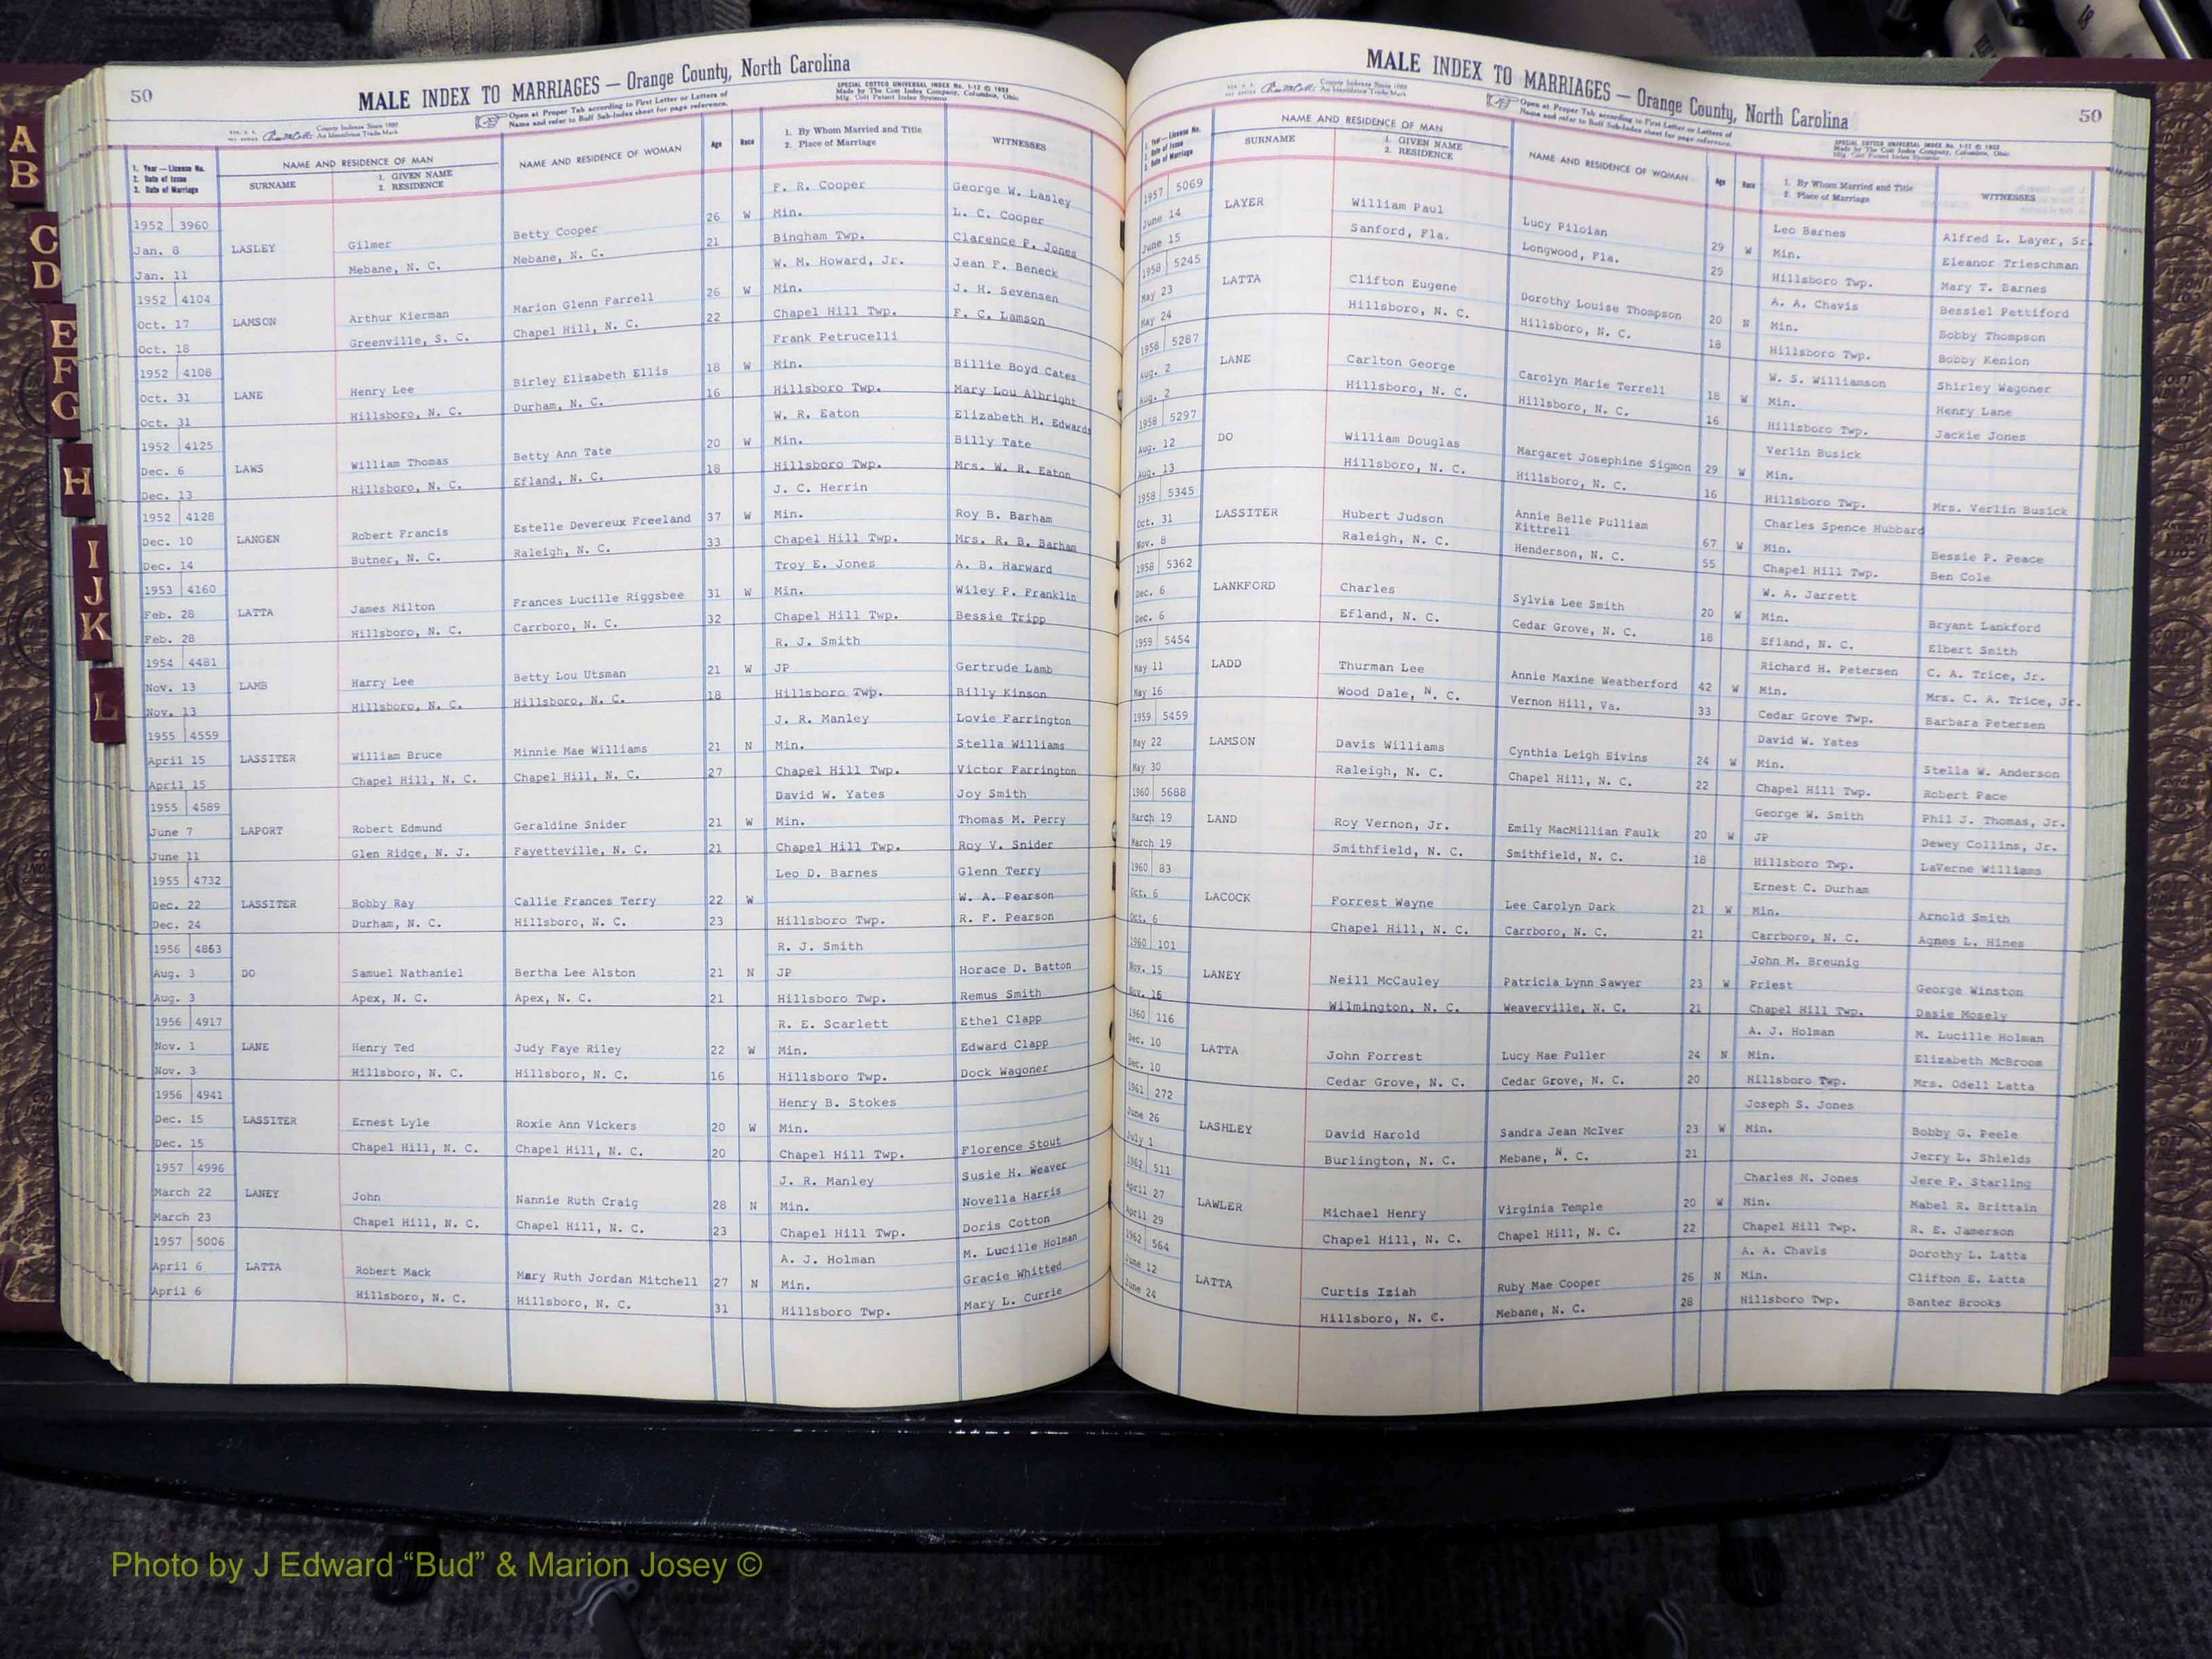 A
B
C
D
E
F
G
H
I
J
K
L
50
MALE INDEX TO MARRIAGES — Orange County, North Carolina
Open at Proper Tab according to First Letter or Letters of
Name and refer to Buff Sub-Index sheet for page reference.
SPECIAL COTTCO UNIVERSAL INDEX No. 1-12 © 1952
Made by The Cott Index Company, Columbus, Ohio
Mfg. Cott Patent Index Systems
County Indexes Since 1888
An Identifying Trade Mark
1. Year — License No.
2. Date of Issue
3. Date of Marriage
NAME AND RESIDENCE OF MAN
SURNAME
1. GIVEN NAME
2. RESIDENCE
NAME AND RESIDENCE OF WOMAN
Age
Race
1. By Whom Married and Title
2. Place of Marriage
WITNESSES
1952 3960 F. R. Cooper George W. Lasley
Jan. 8 LASLEY Gilmer Betty Cooper 26 W Min. L. C. Cooper
Jan. 11 Mebane, N. C. Mebane, N. C. 21 Bingham Twp. Clarence P. Jones
1952 4104 W. M. Howard, Jr. Jean F. Beneck
Oct. 17 LAMSON Arthur Kierman Marion Glenn Farrell 26 W Min. J. H. Sevensen
Oct. 18 Greenville, S. C. Chapel Hill, N. C. 22 Chapel Hill Twp. F. C. Lamson
1952 4108 Frank Petrucelli
Oct. 31 LANE Henry Lee Birley Elizabeth Ellis 18 W Min. Billie Boyd Cates
Oct. 31 Hillsboro, N. C. Durham, N. C. 16 Hillsboro Twp. Mary Lou Albright
1952 4125 W. R. Eaton Elizabeth M. Edwards
Dec. 6 LAWS William Thomas Betty Ann Tate 20 W Min. Billy Tate
Dec. 13 Hillsboro, N. C. Efland, N. C. 18 Hillsboro Twp. Mrs. W. R. Eaton
1952 4128 J. C. Herrin
Dec. 10 LANGEN Robert Francis Estelle Devereux Freeland 37 W Min. Roy B. Barham
Dec. 14 Butner, N. C. Raleigh, N. C. 33 Chapel Hill Twp. Mrs. R. B. Barham
1953 4160 Troy E. Jones A. B. Harward
Feb. 28 LATTA James Milton Frances Lucille Riggsbee 31 W Min. Wiley P. Franklin
Feb. 28 Hillsboro, N. C. Carrboro, N. C. 32 Chapel Hill Twp. Bessie Tripp
1954 4481 R. J. Smith
Nov. 13 LAMB Harry Lee Betty Lou Utsman 21 W JP Gertrude Lamb
Nov. 13 Hillsboro, N. C. Hillsboro, N. C. 18 Hillsboro Twp. Billy Kinson
1955 4559 J. R. Manley Lovie Farrington
April 15 LASSITER William Bruce Minnie Mae Williams 21 N Min. Stella Williams
April 15 Chapel Hill, N. C. Chapel Hill, N. C. 27 Chapel Hill Twp. Victor Farrington
1955 4589 David W. Yates Joy Smith
June 7 LAPORT Robert Edmund Geraldine Snider 21 W Min. Thomas M. Perry
June 11 Glen Ridge, N. J. Fayetteville, N. C. 21 Chapel Hill Twp. Roy V. Snider
1955 4732 Leo D. Barnes Glenn Terry
Dec. 22 LASSITER Bobby Ray Callie Frances Terry 22 W W. A. Pearson
Dec. 24 Durham, N. C. Hillsboro, N. C. 23 Hillsboro Twp. R. F. Pearson
1956 4863 R. J. Smith
Aug. 3 DO Samuel Nathaniel Bertha Lee Alston 21 N JP Horace D. Batton
Aug. 3 Apex, N. C. Apex, N. C. 21 Hillsboro Twp. Remus Smith
1956 4917 R. E. Scarlett Ethel Clapp
Nov. 1 LANE Henry Ted Judy Faye Riley 22 W Min. Edward Clapp
Nov. 3 Hillsboro, N. C. Hillsboro, N. C. 16 Hillsboro Twp. Dock Wagoner
1956 4941 Henry B. Stokes
Dec. 15 LASSITER Ernest Lyle Roxie Ann Vickers 20 W Min.
Dec. 15 Chapel Hill, N. C. Chapel Hill, N. C. 20 Chapel Hill Twp. Florence Stout
1957 4996 J. R. Manley Susie H. Weaver
March 22 LANEY John Nannie Ruth Craig 28 N Min. Novella Harris
March 23 Chapel Hill, N. C. Chapel Hill, N. C. 23 Chapel Hill Twp. Doris Cotton
1957 5006 A. J. Holman M. Lucille Holman
April 6 LATTA Robert Mack Mary Ruth Jordan Mitchell 27 N Min. Gracie Whitted
April 6 Hillsboro, N. C. Hillsboro, N. C. 31 Hillsboro Twp. Mary L. Currie
MALE INDEX TO MARRIAGES — Orange County, North Carolina
50
Open at Proper Tab according to First Letter or Letters of
Name and refer to Buff Sub-Index sheet for page reference.
SPECIAL COTTCO UNIVERSAL INDEX No. 1-12 © 1952
Made by The Cott Index Company, Columbus, Ohio
Mfg. Cott Patent Index Systems
County Indexes Since 1888
An Identifying Trade Mark
1. Year — License No.
2. Date of Issue
3. Date of Marriage
NAME AND RESIDENCE OF MAN
SURNAME
1. GIVEN NAME
2. RESIDENCE
NAME AND RESIDENCE OF WOMAN
Age
Race
1. By Whom Married and Title
2. Place of Marriage
WITNESSES
1957 5069 Leo Barnes Alfred L. Layer, Sr.
June 14 LAYER William Paul Lucy Piloian 29 W Min. Eleanor Trieschman
June 15 Sanford, Fla. Longwood, Fla. 29 Hillsboro Twp. Mary T. Barnes
1958 5245 A. A. Chavis Bessiel Pettiford
May 23 LATTA Clifton Eugene Dorothy Louise Thompson 20 N Min. Bobby Thompson
May 24 Hillsboro, N. C. Hillsboro, N. C. 18 Hillsboro Twp. Bobby Kenion
1958 5287 W. S. Williamson Shirley Wagoner
Aug. 2 LANE Carlton George Carolyn Marie Terrell 18 W Min. Henry Lane
Aug. 2 Hillsboro, N. C. Hillsboro, N. C. 16 Hillsboro Twp. Jackie Jones
1958 5297 Verlin Busick
Aug. 12 DO William Douglas Margaret Josephine Sigmon 29 W Min.
Aug. 13 Hillsboro, N. C. Hillsboro, N. C. 16 Hillsboro Twp. Mrs. Verlin Busick
1958 5345 Charles Spence Hubbard
Oct. 31 LASSITER Hubert Judson Annie Belle Pulliam Kittrell 67 W Min. Bessie P. Peace
Nov. 8 Raleigh, N. C. Henderson, N. C. 55 Chapel Hill Twp. Ben Cole
1958 5362 W. A. Jarrett
Dec. 6 LANKFORD Charles Sylvia Lee Smith 20 W Min. Bryant Lankford
Dec. 6 Efland, N. C. Cedar Grove, N. C. 18 Efland, N. C. Elbert Smith
1959 5454 Richard H. Petersen C. A. Trice, Jr.
May 11 LADD Thurman Lee Annie Maxine Weatherford 42 W Min. Mrs. C. A. Trice, Jr.
May 16 Wood Dale, N. C. Vernon Hill, Va. 33 Cedar Grove Twp. Barbara Petersen
1959 5459 David W. Yates
May 22 LAMSON Davis Williams Cynthia Leigh Bivins 24 W Min. Stella W. Anderson
May 30 Raleigh, N. C. Chapel Hill, N. C. 22 Chapel Hill Twp. Robert Pace
1960 5688 George W. Smith Phil J. Thomas, Jr.
March 19 LAND Roy Vernon, Jr. Emily MacMillian Faulk 20 W JP Dewey Collins, Jr.
March 19 Smithfield, N. C. Smithfield, N. C. 18 Hillsboro Twp. LaVerne Williams
1960 83 Ernest C. Durham
Oct. 6 LACOCK Forrest Wayne Lee Carolyn Dark 21 W Min. Arnold Smith
Oct. 6 Chapel Hill, N. C. Carrboro, N. C. 21 Carrboro, N. C. Agnes L. Hines
1960 101 John M. Breunig
Nov. 15 LANEY Neill McCauley Patricia Lynn Sawyer 23 W Priest George Winston
Nov. 16 Wilmington, N. C. Weaverville, N. C. 21 Chapel Hill Twp. Dasie Mosely
1960 116 A. J. Holman M. Lucille Holman
Dec. 10 LATTA John Forrest Lucy Mae Fuller 24 N Min. Elizabeth McBroom
Dec. 10 Cedar Grove, N. C. Cedar Grove, N. C. 20 Hillsboro Twp. Mrs. Odell Latta
1961 272 Joseph S. Jones
June 26 LASHLEY David Harold Sandra Jean McIver 23 W Min. Bobby G. Peele
July 1 Burlington, N. C. Mebane, N. C. 21 Jerry L. Shields
1962 511 Charles M. Jones Jere P. Starling
April 27 LAWLER Michael Henry Virginia Temple 20 W Min. Mabel R. Brittain
April 29 Chapel Hill, N. C. Chapel Hill, N. C. 22 Chapel Hill Twp. R. E. Jamerson
1962 564 A. A. Chavis Dorothy L. Latta
June 12 LATTA Curtis Iziah Ruby Mae Cooper 26 N Min. Clifton E. Latta
June 24 Hillsboro, N. C. Mebane, N. C. 28 Hillsboro Twp. Banter Brooks
Photo by J Edward “Bud” & Marion Josey ©